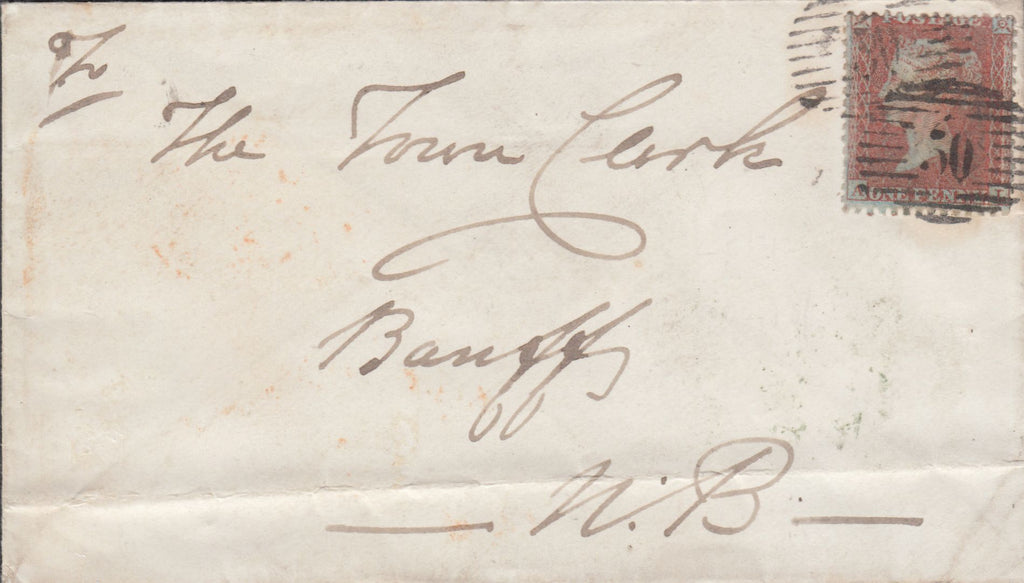 To
The Town Clerk
Banff
N. B
50
ONE PEN